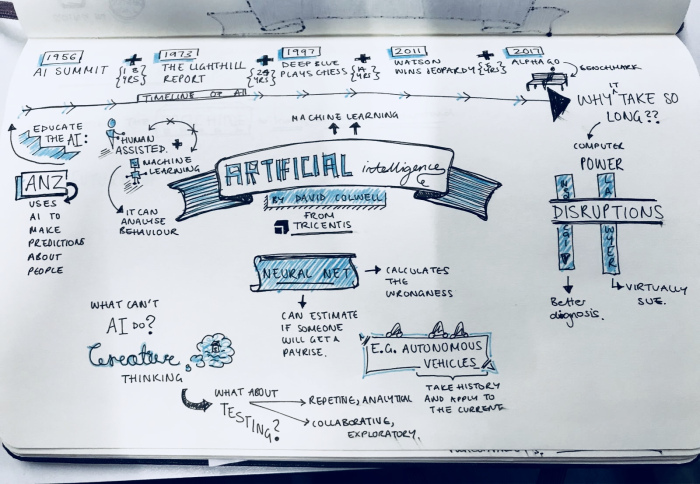 1956
AI SUMMIT
+
{18 YRS}
1973
THE LIGHTHILL
REPORT
+
{24 YRS}
1997
DEEP BLUE
PLAYS CHESS
+
{14 YRS}
2011
WATSON
WINS JEOPARDY
+
{5 YRS}
2017
ALPHA GO
BENCHMARK
TIMELINE OF AI
WHY IT TAKE SO
LONG??
COMPUTER
POWER
DISRUPTIONS
LAWYER
Better
diagnosis.
VIRTUALLY
SUE.
EDUCATE
THE AI:
ANZ
USES
AI TO
MAKE
PREDICTIONS
ABOUT
PEOPLE
HUMAN
ASSISTED.
+
MACHINE
LEARNING
IT CAN
ANALYSE
BEHAVIOUR
MACHINE LEARNING
ARTIFICIAL intelligence
BY DAVID COLWELL
FROM
TRICENTIS
NEURAL NET
CALCULATES
THE
WRONGNESS
CAN ESTIMATE
IF SOMEONE
WILL GET A
PAYRISE.
E.G. AUTONOMOUS
VEHICLES
TAKE HISTORY
AND APPLY TO
THE CURRENT
WHAT CAN'T
AI DO?
Creative
THINKING
WHAT ABOUT
TESTING?
REPETING, ANALYTICAL
COLLABORATIVE,
EXPLORATORY.